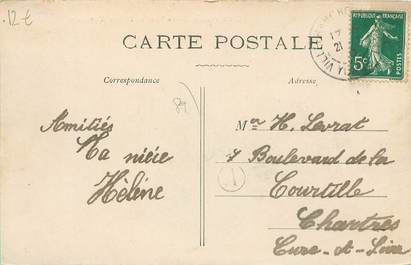 12 €
CARTE POSTALE
RÉPUBLIQUE FRANÇAISE
5c
POSTES
Correspondance
Adresse
Amitiés
Ta nièce
Hélène
Mr H. Levrat
7 Boulevard de la
Courtille
Chartres
Eure-et-Loire